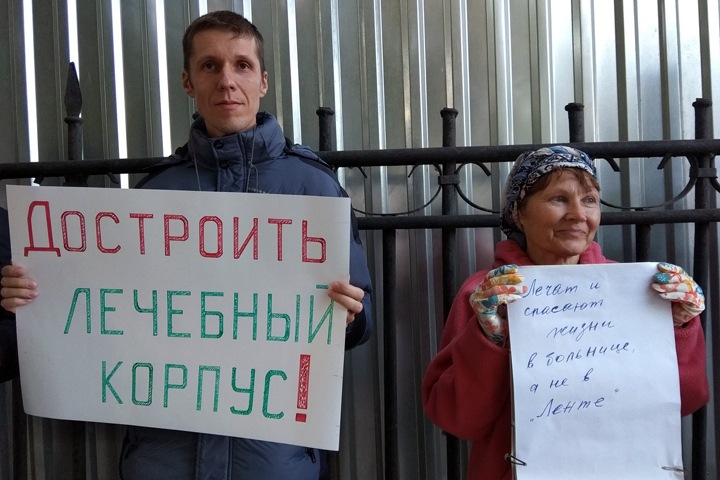 Достроить
лечебный
корпус!
Лечат и
спасают
жизни
в больнице,
а не в
"Ленте"